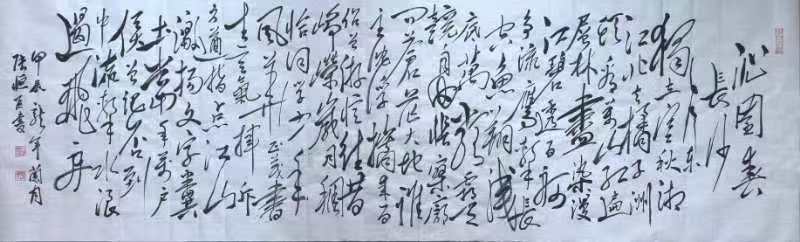 沁园春
长沙
独立寒秋湘
江北去橘子洲
头看万山红遍
层林尽染漫
江碧透百舸
争流鹰击长
空鱼翔浅
底万类霜天
竞自由怅寥廓
问苍茫大地谁
主沉浮携来百
侣曾游忆往昔
峥嵘岁月稠
恰同学少年
风华正茂书
生意气挥斥
方遒指点江山
激扬文字粪
土当年万户
侯曾记否到
中流击水浪
遏飞舟
甲辰龙年兰月
书